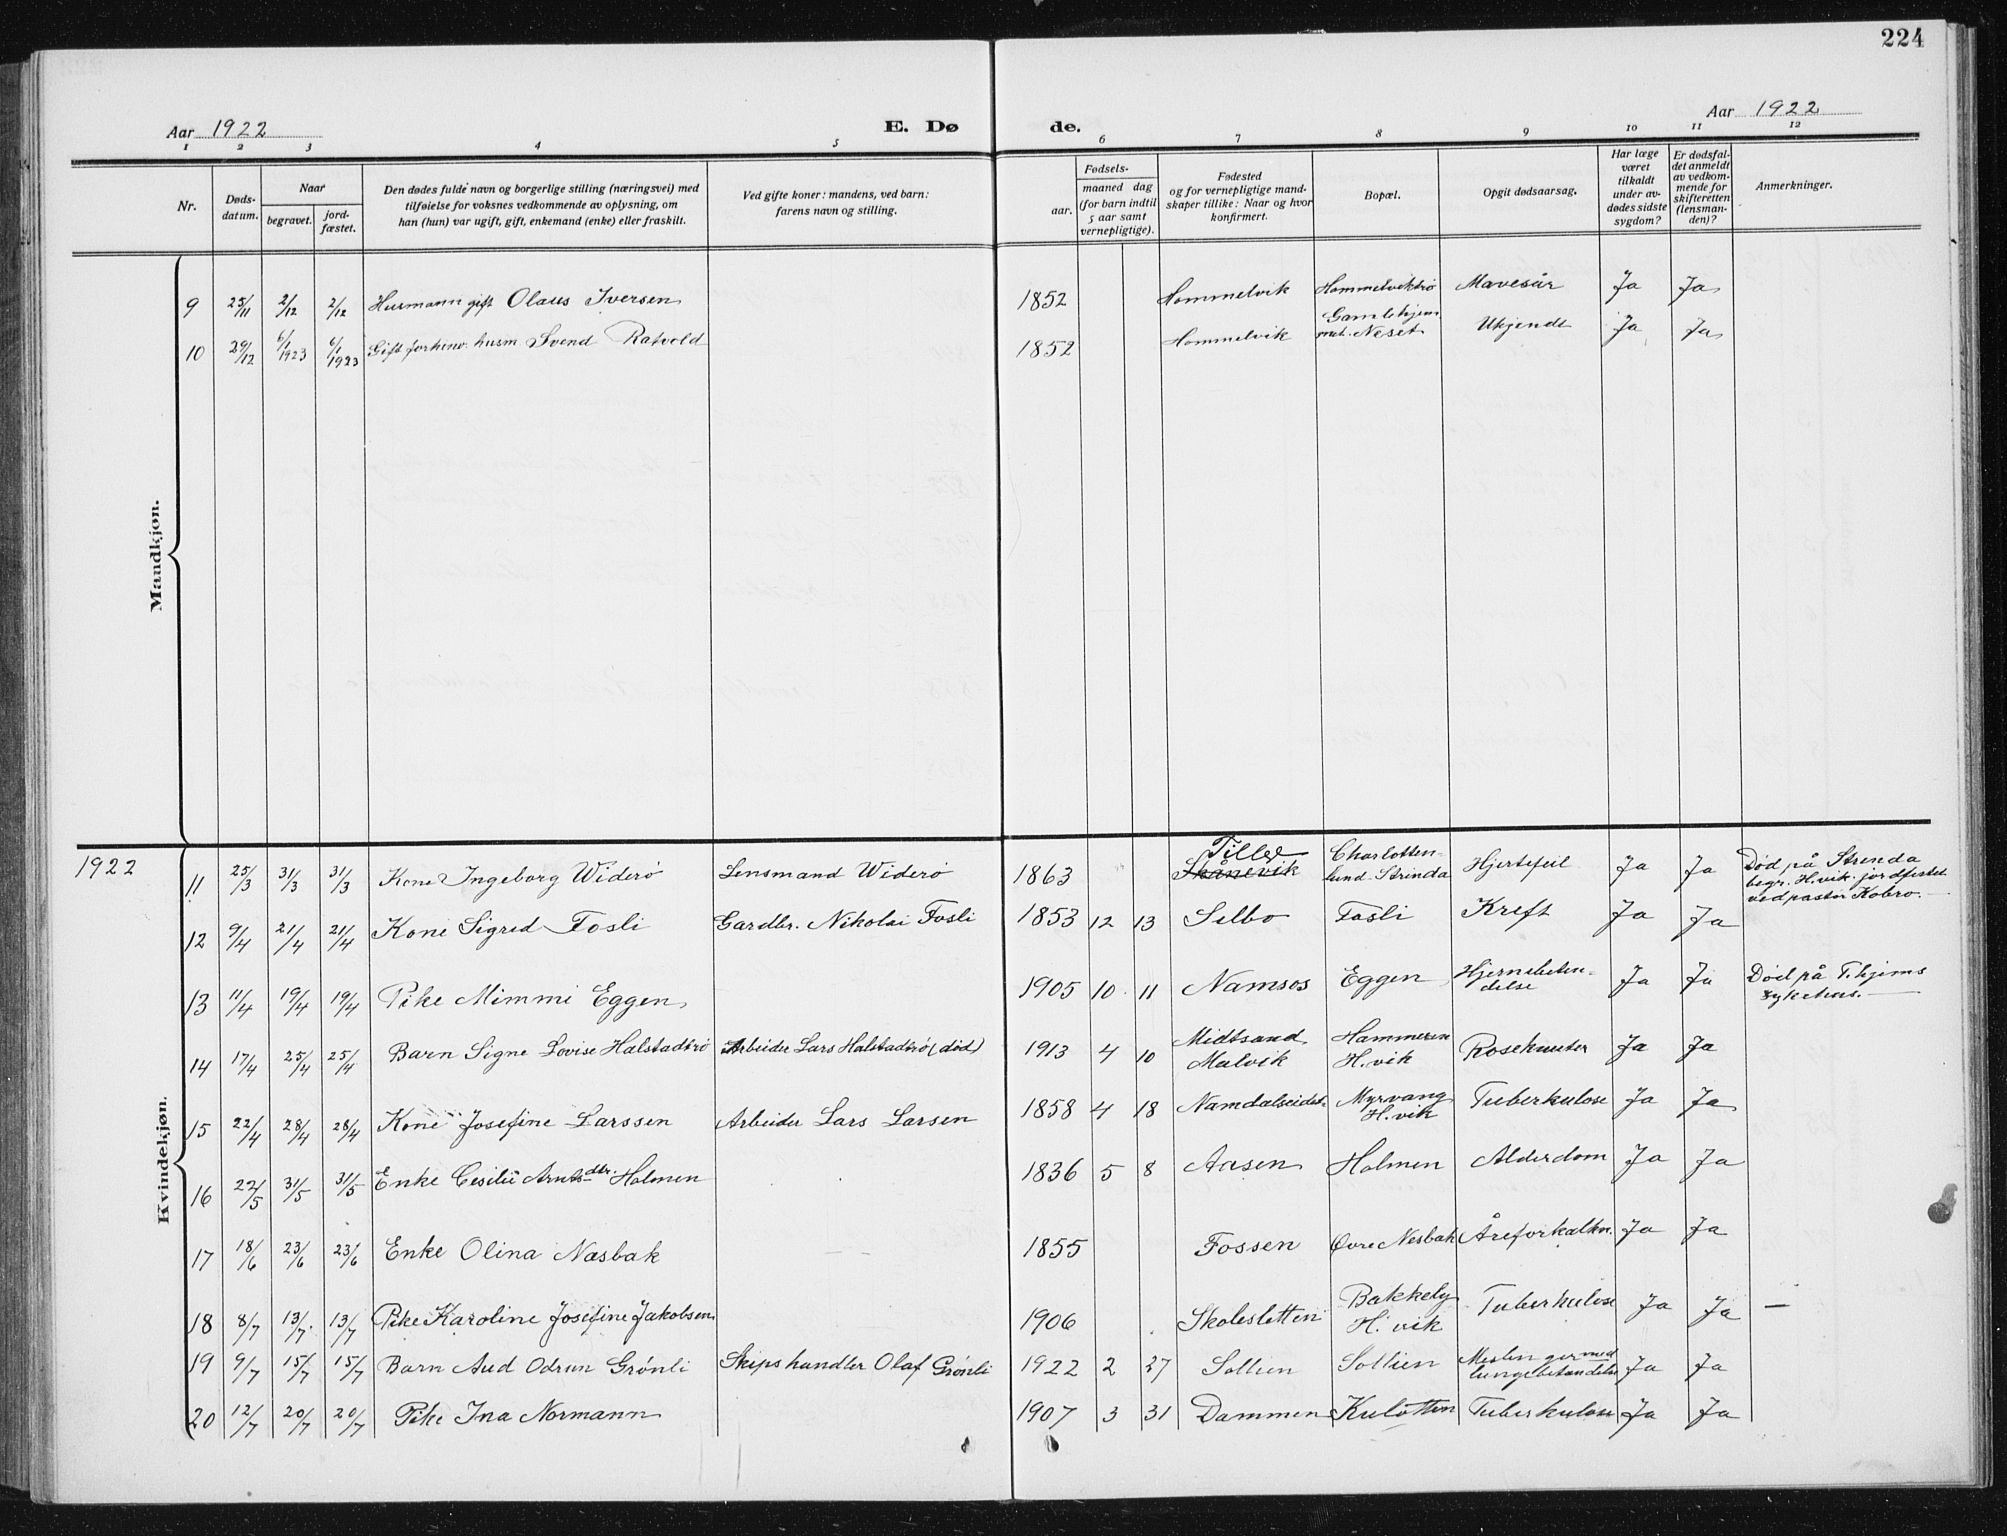 224
Aar 1922
E. Dø
de.
Aar 1922
1 2 3 4 5 6 7 8 9 10 11 12
Nr.
Døds-
datum.
Naar
begravet.
jord-
fæstet.
Den dødes fulde navn og borgerlige stilling (næringsvei) med
tilføielse for voksnes vedkommende av oplysning, om
han (hun) var ugift, gift, enkemand (enke) eller fraskilt.
Ved gifte koner: mandens, ved barn:
farens navn og stilling.
Fødsels-
aar.
maaned dag
(for barn indtil
5 aar samt
vernepligtige).
Fødested
og for vernepligtige mand-
skaper tillike: Naar og hvor
konfirmert.
Bopæl.
Opgit dødsaarsag.
Har læge
været
tilkaldt
under av-
dødes sidste
sygdom?
Er dødsfal-
det anmeldt
av vedkom-
mende for
skifteretten
(lensman-
den)?
Anmerkninger.
Mandkjøn.
9 25/11 2/12 2/12 Husmann gift Olaus Iversen 1852 Hommelvik Hommelviktrø Mavesår Ja Ja
10 29/12 6/1 1923 6/1 1923 Gift forhenv. husm Svend Ratvold 1852 Hommelvik Gamlehjem
met. Neset Ukjendt Ja Ja
1922
Kvindekjøn.
11 25/3 31/3 31/3 Kone Ingeborg Widerö Lensmand Widerö 1863 Tiller
Skånevik Charlotten-
lund Strinda Hjertefeil Ja Ja Död på Strinda
begr. H.vik. jordfestet
ved pastor Kobro.
12 9/4 21/4 21/4 Kone Sigrid Fosli Gardbr. Nikolai Fosli 1853 12 13 Selbo Fosli Kreft Ja Ja
13 11/4 19/4 19/4 Pike Mimmi Eggen 1905 10 11 Namsos Eggen Hjernebeten-
delse Ja Ja Död på T.hjems
sykehus.
14 17/4 25/4 25/4 Barn Signe Lovise Halstadtrö Arbeider Lars Halstadtrö (död) 1913 4 10 Midtsand
Malvik Hammeren
H.vik Roseknuter Ja Ja
15 22/4 28/4 28/4 Kone Josefine Larssen Arbeider Lars Larsen 1858 4 18 Namdalseidet Myrvang
H.vik Tuberkulose Ja Ja
16 22/5 31/5 31/5 Enke Cesilie Arntsdtr. Holmen 1836 5 8 Aasen Holmen Alderdom Ja Ja
17 18/6 23/6 23/6 Enke Olina Næsbak 1855 Fossen Øvre Nesbak Åreforkalkn. Ja Ja
18 8/7 13/7 13/7 Pike Karoline Josefine Jakobsen 1906 Skolesletten Bakkely
H. vik Tuberkulose Ja Ja —
19 9/7 15/7 15/7 Barn Aud Odrun Grönli Skipshandler Olaf Grönli 1922 2 27 Sollien Sollien Meslinger med
lungebetændelse Ja Ja
20 12/7 20/7 20/7 Pike Ina Normann 1907 3 31 Dammen Kulotten Tuberkulose Ja Ja